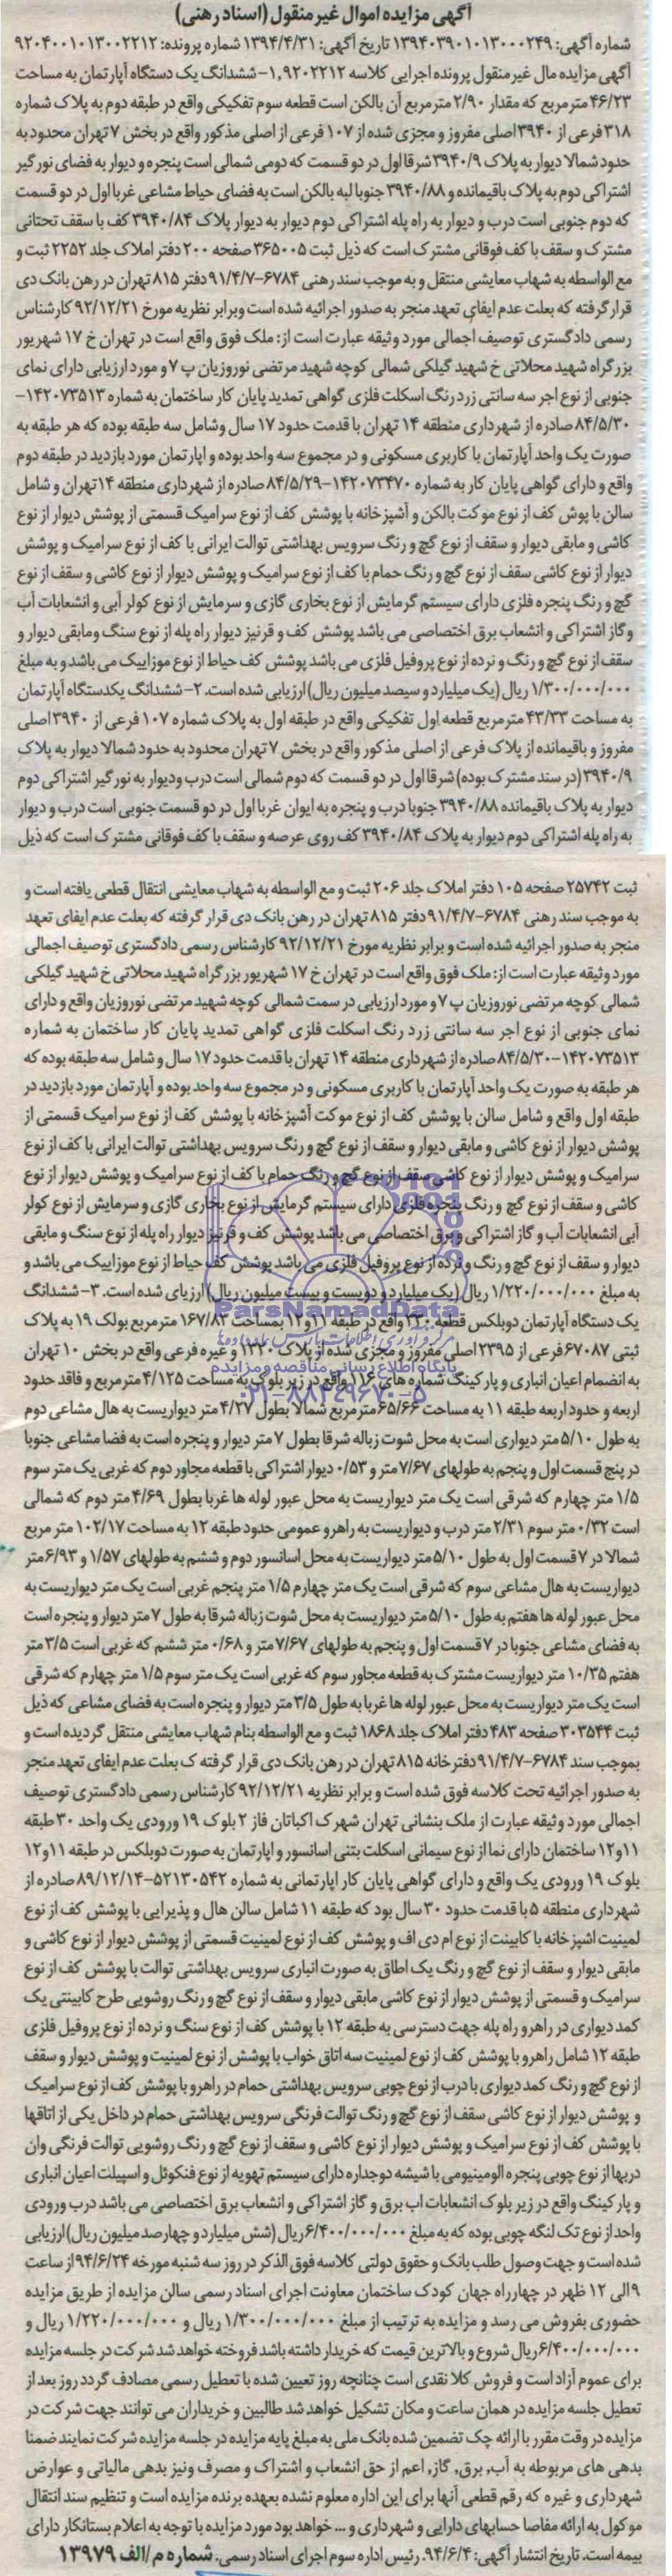 آگهی مزایده اموال غیر منقول (اسناد رهنی)
شماره آگهی: ۱۳۹۴۰۳۹۰۱۰۱۳۰۰۰۲۴۹ تاریخ آگهی: ۱۳۹۴/۴/۳۱ شماره پرونده: ۹۲۰۴۰۰۱۰۱۳۰۰۲۲۱۲
آگهی مزایده مال غیر منقول پرونده اجرایی کلاسه ۹۲۰۲۲۱۲, ۱-ششدانگ یک دستگاه آپارتمان به مساحت
۴۶/۲۳ متر مربع که مقدار ۲/۹۰ متر مربع آن بالکن است قطعه سوم تفکیکی واقع در طبقه دوم به پلاک شماره
۳۱۸ فرعی از ۳۹۴۰ اصلی مفروز و مجزی شده از ۱۰۷ فرعی از اصلی مذکور واقع در بخش ۷ تهران محدود به
حدود شمالا دیوار به پلاک ۳۹۴۰/۹ شرقا اول در دو قسمت که دومی شمالی است پنجره و دیوار به فضای نورگیر
اشتراکی دوم به پلاک باقیمانده و ۳۹۴۰/۸۸ جنوبا لبه بالکن است به فضای حیاط مشاعی غربا اول در دو قسمت
که دوم جنوبی است درب و دیوار به راه پله اشتراکی دوم دیوار به دیوار پلاک ۳۹۴۰/۸۴ کف با سقف تحتانی
مشترک و سقف با کف فوقانی مشترک است که ذیل ثبت ۳۶۵۰۰۵ صفحه ۲۰۰ دفتر املاک جلد ۲۲۵۲ ثبت و
مع الواسطه به شهاب معایشی منتقل و به موجب سند رهنی ۶۷۸۴-۹۱/۴/۷ دفتر ۸۱۵ تهران در رهن بانک دی
قرار گرفته که بعلت عدم ایفای تعهد منجر به صدور اجرائیه شده است وبرابر نظریه مورخ ۹۲/۱۲/۲۱ کارشناس
رسمی دادگستری توصیف اجمالی مورد وثیقه عبارت است از: ملک فوق واقع است در تهران خ ۱۷ شهریور
بزرگراه شهید محلاتی خ شهید گیلکی شمالی کوچه شهید مرتضی نوروزیان پ ۷ و مورد ارزیابی دارای نمای
جنوبی از نوع اجر سه سانتی زرد رنگ اسکلت فلزی گواهی تمدید پایان کار ساختمان به شماره ۱۴۲۰۷۳۵۱۳-
۸۴/۵/۳۰ صادره از شهرداری منطقه ۱۴ تهران با قدمت حدود ۱۷ سال وشامل سه طبقه بوده که هر طبقه به
صورت یک واحد آپارتمان با کاربری مسکونی و در مجموع سه واحد بوده و اپارتمان مورد بازدید در طبقه دوم
واقع و دارای گواهی پایان کار به شماره ۱۴۲۰۷۳۴۷۰-۸۴/۵/۲۹ صادره از شهرداری منطقه ۱۴ تهران و شامل
سالن با پوش کف از نوع موکت بالکن و آشپزخانه با پوشش کف از نوع سرامیک قسمتی از پوشش دیوار از نوع
کاشی و مابقی دیوار و سقف از نوع گچ و رنگ سرویس بهداشتی توالت ایرانی با کف از نوع سرامیک و پوشش
دیوار از نوع کاشی سقف از نوع گچ و رنگ حمام با کف از نوع سرامیک و پوشش دیوار از نوع کاشی و سقف از نوع
گچ و رنگ پنجره فلزی دارای سیستم گرمایش از نوع بخاری گازی و سرمایش از نوع کولر آبی و انشعابات آب
وگاز اشتراکی و انشعاب برق اختصاصی می باشد پوشش کف و قرنیز دیوار راه پله از نوع سنگ ومابقی دیوار و
سقف از نوع گچ و رنگ و نرده از نوع پروفیل فلزی می باشد پوشش کف حیاط از نوع موزاییک می باشد و به مبلغ
۱/۳۰۰/۰۰۰/۰۰۰ ریال (یک میلیارد و سیصد میلیون ریال) ارزیابی شده است. ۲-ششدانگ یکدستگاه آپارتمان
به مساحت ۴۳/۳۳ متر مربع قطعه اول تفکیکی واقع در طبقه اول به پلاک شماره ۱۰۷ فرعی از ۳۹۴۰ اصلی
مفروز و باقیمانده از پلاک فرعی از اصلی مذکور واقع در بخش ۷ تهران محدود به حدود شمالا دیوار به پلاک
۳۹۴۰/۹ (در سند مشترک بوده) شرقا اول در دو قسمت که دوم شمالی است درب ودیوار به نورگیر اشتراکی دوم
دیوار به پلاک باقیمانده ۳۹۴۰/۸۸ جنوبا درب و پنجره به ایوان غربا اول در دو قسمت جنوبی است درب و دیوار
به راه پله اشتراکی دوم دیوار به پلاک ۳۹۴۰/۸۴ کف روی عرصه و سقف با کف فوقانی مشترک است که ذیل
ثبت ۲۵۷۴۲ صفحه ۱۰۵ دفتر املاک جلد ۲۰۶ ثبت و مع الواسطه به شهاب معایشی انتقال قطعی یافته است و
به موجب سند رهنی ۶۷۸۴-۹۱/۴/۷ دفتر ۸۱۵ تهران در رهن بانک دی قرار گرفته که بعلت عدم ایفای تعهد
منجر به صدور اجرائیه شده است و برابر نظریه مورخ ۹۲/۱۲/۲۱ کارشناس رسمی دادگستری توصیف اجمالی
مورد وثیقه عبارت است از: ملک فوق واقع است در تهران خ ۱۷ شهریور بزرگراه شهید محلاتی خ شهید گیلکی
شمالی کوچه مرتضی نوروزیان پ ۷ و مورد ارزیابی در سمت شمالی کوچه شهید مرتضی نوروزیان واقع و دارای
نمای جنوبی از نوع اجر سه سانتی زرد رنگ اسکلت فلزی گواهی تمدید پایان کار ساختمان به شماره
۱۴۲۰۷۳۵۱۳-۸۴/۵/۳۰ صادره از شهرداری منطقه ۱۴ تهران با قدمت حدود ۱۷ سال و شامل سه طبقه بوده که
هر طبقه به صورت یک واحد آپارتمان با کاربری مسکونی و در مجموع سه واحد بوده و آپارتمان مورد بازدید در
طبقه اول واقع و شامل سالن با پوشش کف از نوع موکت آشپزخانه با پوشش کف از نوع سرامیک قسمتی از
پوشش دیوار از نوع کاشی و مابقی دیوار و سقف از نوع گچ و رنگ سرویس بهداشتی توالت ایرانی با کف از نوع
سرامیک و پوشش دیوار از نوع کاشی سقف از نوع گچ و رنگ حمام با کف از نوع سرامیک و پوشش دیوار از نوع
کاشی و سقف از نوع گچ و رنگ پنجره فلزی دارای سیستم گرمایش از نوع بخاری گازی و سرمایش از نوع کولر
آبی انشعابات آب و گاز اشتراکی و برق اختصاصی می باشد پوشش کف و قرنیز دیوار راه پله از نوع سنگ و مابقی
دیوار و سقف از نوع گچ و رنگ و نرده از نوع پروفیل فلزی می باشد پوشش کف حیاط از نوع موزاییک می باشد و
به مبلغ ۱/۲۲۰/۰۰۰/۰۰۰ ریال (یک میلیارد و دویست و بیست میلیون ریال) ارزیابی شده است. ۳-ششدانگ
یک دستگاه آپارتمان دوبلکس قطعه واقع در طبقه ۱۱ و ۱۲ بمساحت ۱۶۷/۸۳ متر مربع بولک ۱۹ به پلاک
ثبتی ۶۷۰۸۷ فرعی از ۲۳۹۵ اصلی مفروز و مجزی شده از پلاک ۱۳۲۰ و غیره فرعی واقع در بخش ۱۰ تهران
به انضمام اعیان انباری و پارکینگ شماره های ۱۱۶ واقع در زیر بلوک به مساحت ۴/۱۲۵ متر مربع و فاقد حدود
اربعه و حدود اربعه طبقه ۱۱ به مساحت ۶۵/۶۶ متر مربع شمالا بطول ۴/۲۷ متر دیواریست به هال مشاعی دوم
به طول ۵/۱۰ متر دیواری است به محل شوت زباله شرقا بطول ۷ متر دیوار و پنجره است به فضا مشاعی جنوبا
در پنج قسمت اول و پنجم به طولهای ۷/۶۷ متر و ۰/۵۳ دیوار اشتراکی با قطعه مجاور دوم که غربی یک متر سوم
۱/۵ متر چهارم که شرقی است یک متر دیواریست به محل عبور لوله ها غربا بطول ۴/۶۹ متر دوم که شمالی
است ۰/۳۲ متر سوم ۲/۳۱ متر درب و دیواریست به راهرو عمومی حدود طبقه ۱۲ به مساحت ۱۰۲/۱۷ متر مربع
شمالا در ۷ قسمت اول به طول ۵/۱۰ متر دیواریست به محل اسانسور دوم و ششم به طولهای ۱/۵۷ و ۶/۹۳ متر
دیواریست به هال مشاعی سوم که شرقی است یک متر چهارم ۱/۵ متر پنجم غربی است یک متر دیواریست به
محل عبور لوله ها هفتم به طول ۵/۱۰ متر دیواریست به محل شوت زباله شرقا به طول ۷ متر دیوار و پنجره است
به فضای مشاعی جنوبا در ۷ قسمت اول و پنجم به طولهای ۷/۶۷ متر و ۰/۶۸ متر ششم که غربی است ۳/۵ متر
هفتم ۱۰/۳۵ متر دیواریست مشترک به قطعه مجاور سوم که غربی است یک متر سوم ۱/۵ متر چهارم که شرقی
است یک متر دیواریست به محل عبور لوله ها غربا به طول ۳/۵ متر دیوار و پنجره است به فضای مشاعی که ذیل
ثبت ۳۰۳۵۴۴ صفحه ۴۸۳ دفتر املاک جلد ۱۸۶۸ ثبت و مع الواسطه بنام شهاب معایشی منتقل گردیده است و
بموجب سند ۶۷۸۴-۹۱/۴/۷ دفترخانه ۸۱۵ تهران در رهن بانک دی قرار گرفته ک بعلت عدم ایفای تعهد منجر
به صدور اجرائیه تحت کلاسه فوق شده است و برابر نظریه ۹۲/۱۲/۲۱ کارشناس رسمی دادگستری توصیف
اجمالی مورد وثیقه عبارت از ملک بنشانی تهران شهرک اکباتان فاز ۲ بلوک ۱۹ ورودی یک واحد ۳۰ طبقه
۱۱و۱۲ ساختمان دارای نما از نوع سیمانی اسکلت بتنی اسانسور و اپارتمان به صورت دوبلکس در طبقه ۱۱و۱۲
بلوک ۱۹ ورودی یک واقع و دارای گواهی پایان کار اپارتمانی به شماره ۵۲۱۳۰۵۴۲-۸۹/۱۲/۱۴ صادره از
شهرداری منطقه ۵ با قدمت حدود ۳۰ سال بود که طبقه ۱۱ شامل سالن هال و پذیرایی با پوشش کف از نوع
لمینت اشپزخانه با کابینت از نوع ام دی اف و پوشش کف از نوع لمینت قسمتی از پوشش دیوار از نوع کاشی و
مابقی دیوار و سقف از نوع گچ و رنگ یک اطاق به صورت انباری سرویس بهداشتی توالت با پوشش کف از نوع
سرامیک و قسمتی از پوشش دیوار از نوع کاشی مابقی دیوار و سقف از نوع گچ و رنگ روشویی طرح کابینتی یک
کمد دیواری در راهرو راه پله جهت دسترسی به طبقه ۱۲ با پوشش کف از نوع سنگ و نرده از نوع پروفیل فلزی
طبقه ۱۲ شامل راهرو با پوشش کف از نوع لمینت سه اتاق خواب با پوشش از نوع لمینیت و پوشش دیوار و سقف
از نوع گچ و رنگ کمد دیواری با درب از نوع چوبی سرویس بهداشتی حمام در راهرو با پوشش کف از نوع سرامیک
و پوشش دیوار از نوع کاشی سقف از نوع گچ و رنگ توالت فرنگی سرویس بهداشتی حمام در داخل یکی از اتاقها
با پوشش کف از نوع سرامیک و پوشش دیوار از نوع کاشی و سقف از نوع گچ و رنگ روشویی توالت فرنگی وان
دربها از نوع چوبی پنجره الومینیومی با شیشه دوجداره دارای سیستم تهویه از نوع فنکوئل و اسپیلت اعیان انباری
و پارکینگ واقع در زیر بلوک انشعابات اب برق و گاز اشتراکی و انشعاب برق اختصاصی می باشد درب ورودی
واحد از نوع تک لنگه چوبی بوده که به مبلغ ۶/۴۰۰/۰۰۰/۰۰۰ ریال (شش میلیارد و چهارصد میلیون ریال) ارزیابی
شده است و جهت وصول طلب بانک و حقوق دولتی کلاسه فوق الذکر در روز سه شنبه مورخه ۹۴/۶/۲۴ از ساعت
۹ الی ۱۲ ظهر در چهارراه جهان کودک ساختمان معاونت اجرای اسناد رسمی سالن مزایده از طریق مزایده
حضوری بفروش می رسد و مزایده به ترتیب از مبلغ ۱/۳۰۰/۰۰۰/۰۰۰ ریال و ۱/۲۲۰/۰۰۰/۰۰۰ ریال و
۶/۴۰۰/۰۰۰/۰۰۰ ریال شروع و بالاترین قیمت که خریدار داشته باشد فروخته خواهد شد شرکت در جلسه مزایده
برای عموم آزاد است و فروش کلا نقدی است چنانچه روز تعیین شده با تعطیل رسمی مصادف گردد روز بعد از
تعطیل جلسه مزایده در همان ساعت و مکان تشکیل خواهد شد طالبین و خریداران می توانند جهت شرکت در
مزایده در وقت مقرر با ارائه چک تضمین شده بانک ملی به مبلغ پایه مزایده در جلسه مزایده شرکت نمایند ضمنا
بدهی های مربوطه به آب, برق, گاز, اعم از حق انشعاب و اشتراک و مصرف ونیز بدهی مالیاتی و عوارض
شهرداری و غیره که رقم قطعی آنها برای این اداره معلوم نشده بعهده برنده مزایده است و تنظیم سند انتقال
موکول به ارائه مفاصا حسابهای دارایی و شهرداری و ... خواهد بود مورد مزایده با توجه به اعلام بستانکار دارای
بیمه است. تاریخ انتشار آگهی: ۹۴/۶/۴. رئیس اداره سوم اجرای اسناد رسمی. شماره م/الف ۱۳۹۷۹
ParsNamadData
مرکز فرآوری اطلاعات پارس نماد داده ها
پایگاه اطلاع رسانی مناقصه و مزایده
۰۲۱-۸۸۳۴۹۶۷۰-۵